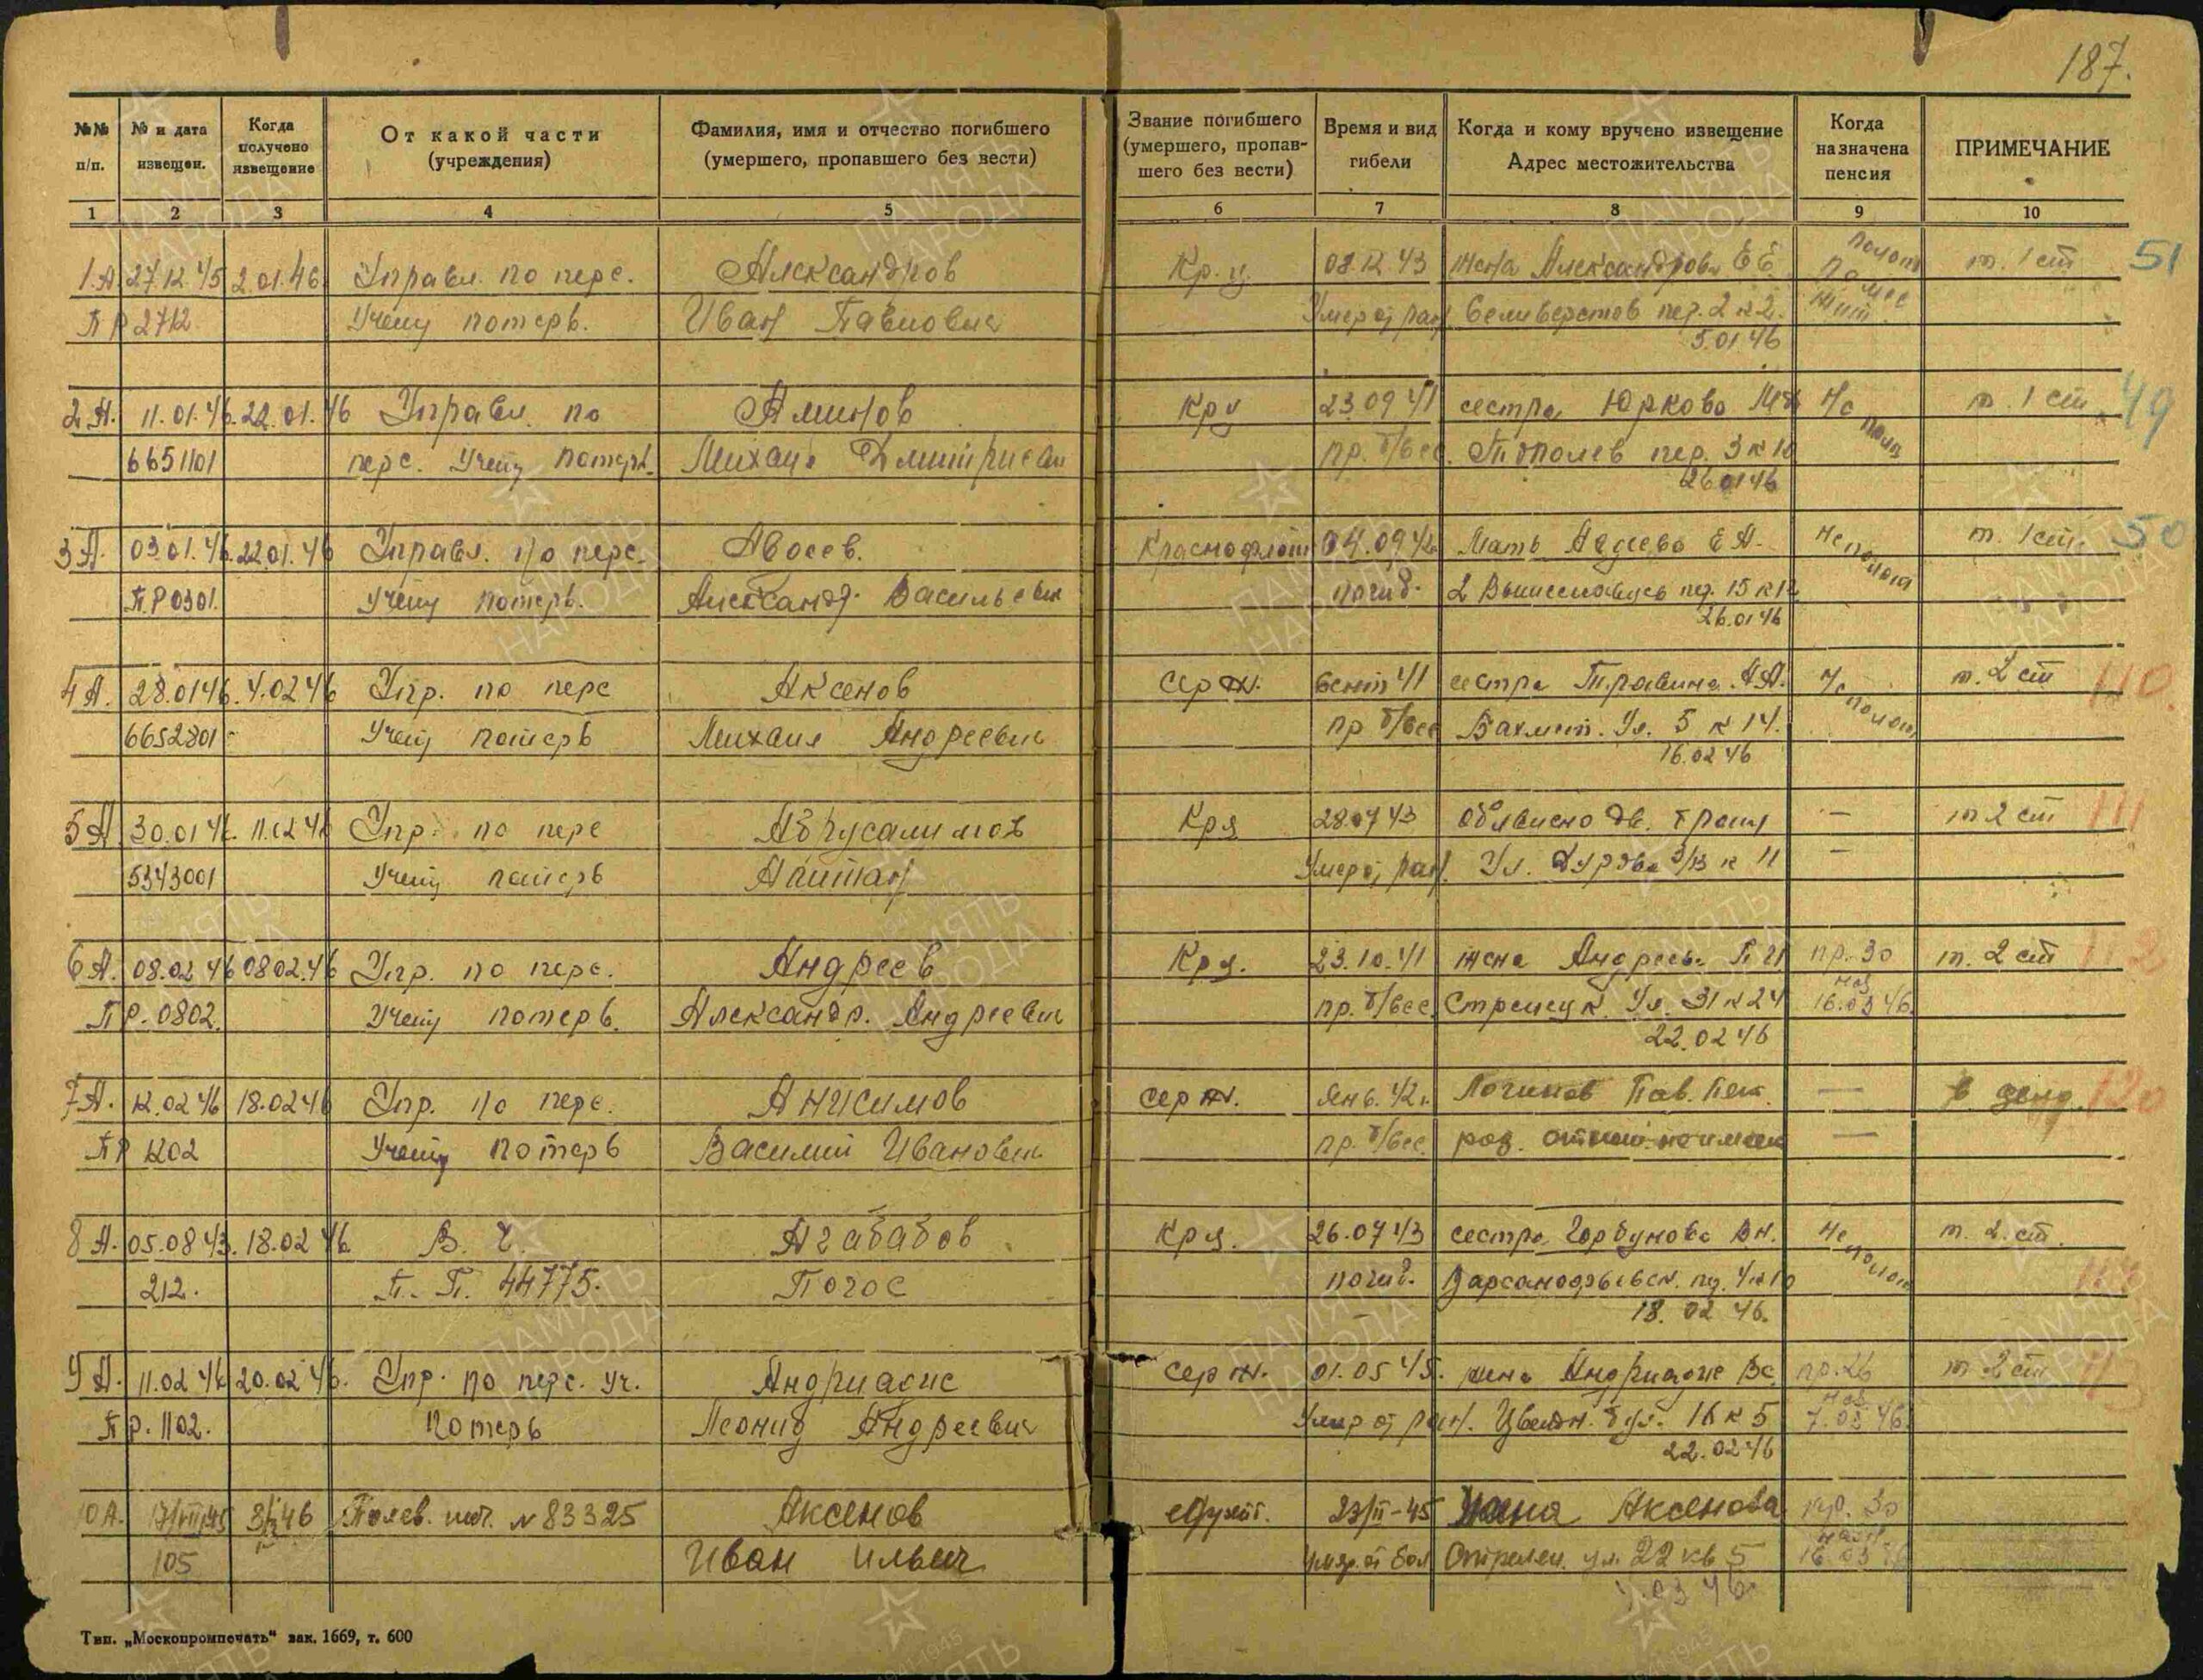 187.
№№ п/п.
№ и дата извещен.
Когда получено извещение
От какой части (учреждения)
Фамилия, имя и отчество погибшего (умершего, пропавшего без вести)
Звание погибшего (умершего, пропавшего без вести)
Время и вид гибели
Когда и кому вручено извещение Адрес местожительства
Когда назначена пенсия
ПРИМЕЧАНИЕ
1 2 3 4 5 6 7 8 9 10
1 А. 27.12.45 2.01.46 Управл. по перс. Александров Кр. ц 08.12.43 жена Александрова Е Е т. 1 ст 51
ПР 2712 Учету потерь. Иван Павлович Умер от ран Селиверстов пер. 2 к 2.
5.01.46
2 А. 11.01.46. 22.01.46 Управл. по Аминов Кр ц 23.09.41 сестра Юркова Не полож т. 1 ст. 49
6651101 перс. Учету потерь. Михаил Дмитриевич пр. б/вес. Тополев пер. 3 к 10
26.01.46
3 А. 03.01.46. 22.01.46 Управл. по перс. Авдеев. Краснофлот 04.09.42 Мать Авдеева Е А. Не полож т. 1 ст. 50
П.Р 0301. Учету потерь. Александр. Васильевич погиб. 2 Вышеславцев пер. 15 к 12
26.01.46
4 А. 28.01.46. 4.02.46 Упр. по перс Аксенов Серж. сент 41 сестра Травина А.А. Не полож т. 2 ст 110
6652801 Учету потерь Михаил Андреевич пр б/вес Бахмет. Ул. 5 к 14.
16.02.46
5 А. 30.01.46. 11.02.46 Упр. по перс Абрусалимов Кр ц 28.07.43 Объявлено дв. — т 2 ст 111
5343001 Учету потерь Умер от ран. Ул. Дурова 3/13 к 11 —
6 А. 08.02.46 08.02.46 Упр. по перс. Андреев Кр ц. 23.10.41 жена Андреева пр. 30 т. 2 ст 112
ПР. 0802. Учету потерь. Александр. Андреевич пр. б/вес. Стрелецк. Ул. 31 к 24 наз 16.03.46.
22.02.46
7 А. 12.02.46 18.02.46 Упр. по перс. Анисимов серж. Янв. 42 г. Логинов Пав. — 120
ПР 1202 Учету потерь Василий Иванович пр. б/вес. —
8 А. 05.08.43. 18.02.46. В. Ч. Агабабов Кр ц. 26.07.43 сестра Горбунова В.Н. Не полож т. 2. ст.
212. П. П. 44775. Погос погиб. Варсанофьевск. пер. 4 к 10
18. 02 46.
9 А. 11.02.46 20.02.46. Упр. по перс. Уч. Андриадис Серж. 01.05.45. жена Андриадис пр. 26 т 2 ст 113
Пр. 1102. Потерь Леонид Андреевич Умер от ран. Цветн. бул. 16 к 5 наз 7.03.46.
22.02.46
10 А. 17/VIII 45 Полев. поч. № 83325 Аксенов ефрейт. 23/II-45 Жена Аксенова пр. 30
105 Иван Ильич умер. от бол Стрелец. ул. 22 кв 5 назн 16.03.46
Тип. „Москопромпечать“ зак. 1669, т. 600
ПАМЯТЬ НАРОДА
1941-1945